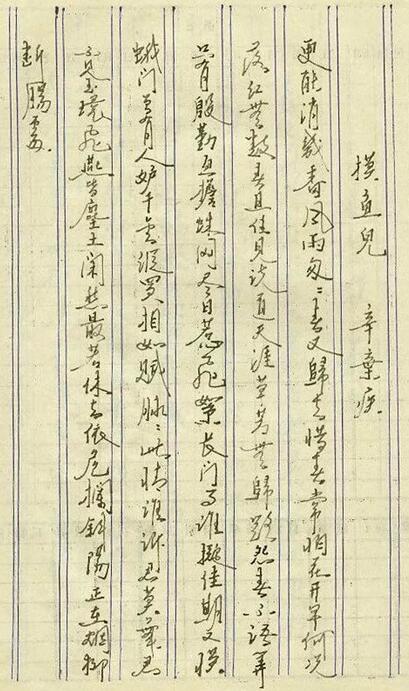 摸魚兒 辛棄疾
更能消幾番風雨匆匆春又歸去惜春常怕花開早何況
落紅無數春且住見说道天涯草芳無歸路怨春不語算
只有殷勤画簷蛛网尽日惹飛絮长门事準擬佳期又誤
蛾眉曾有人妒千金縱買相如賦脉脉此情誰訴君莫舞君
不見玉環飛燕皆塵土闲愁最苦休去依危欄斜陽正在烟柳
斷腸處